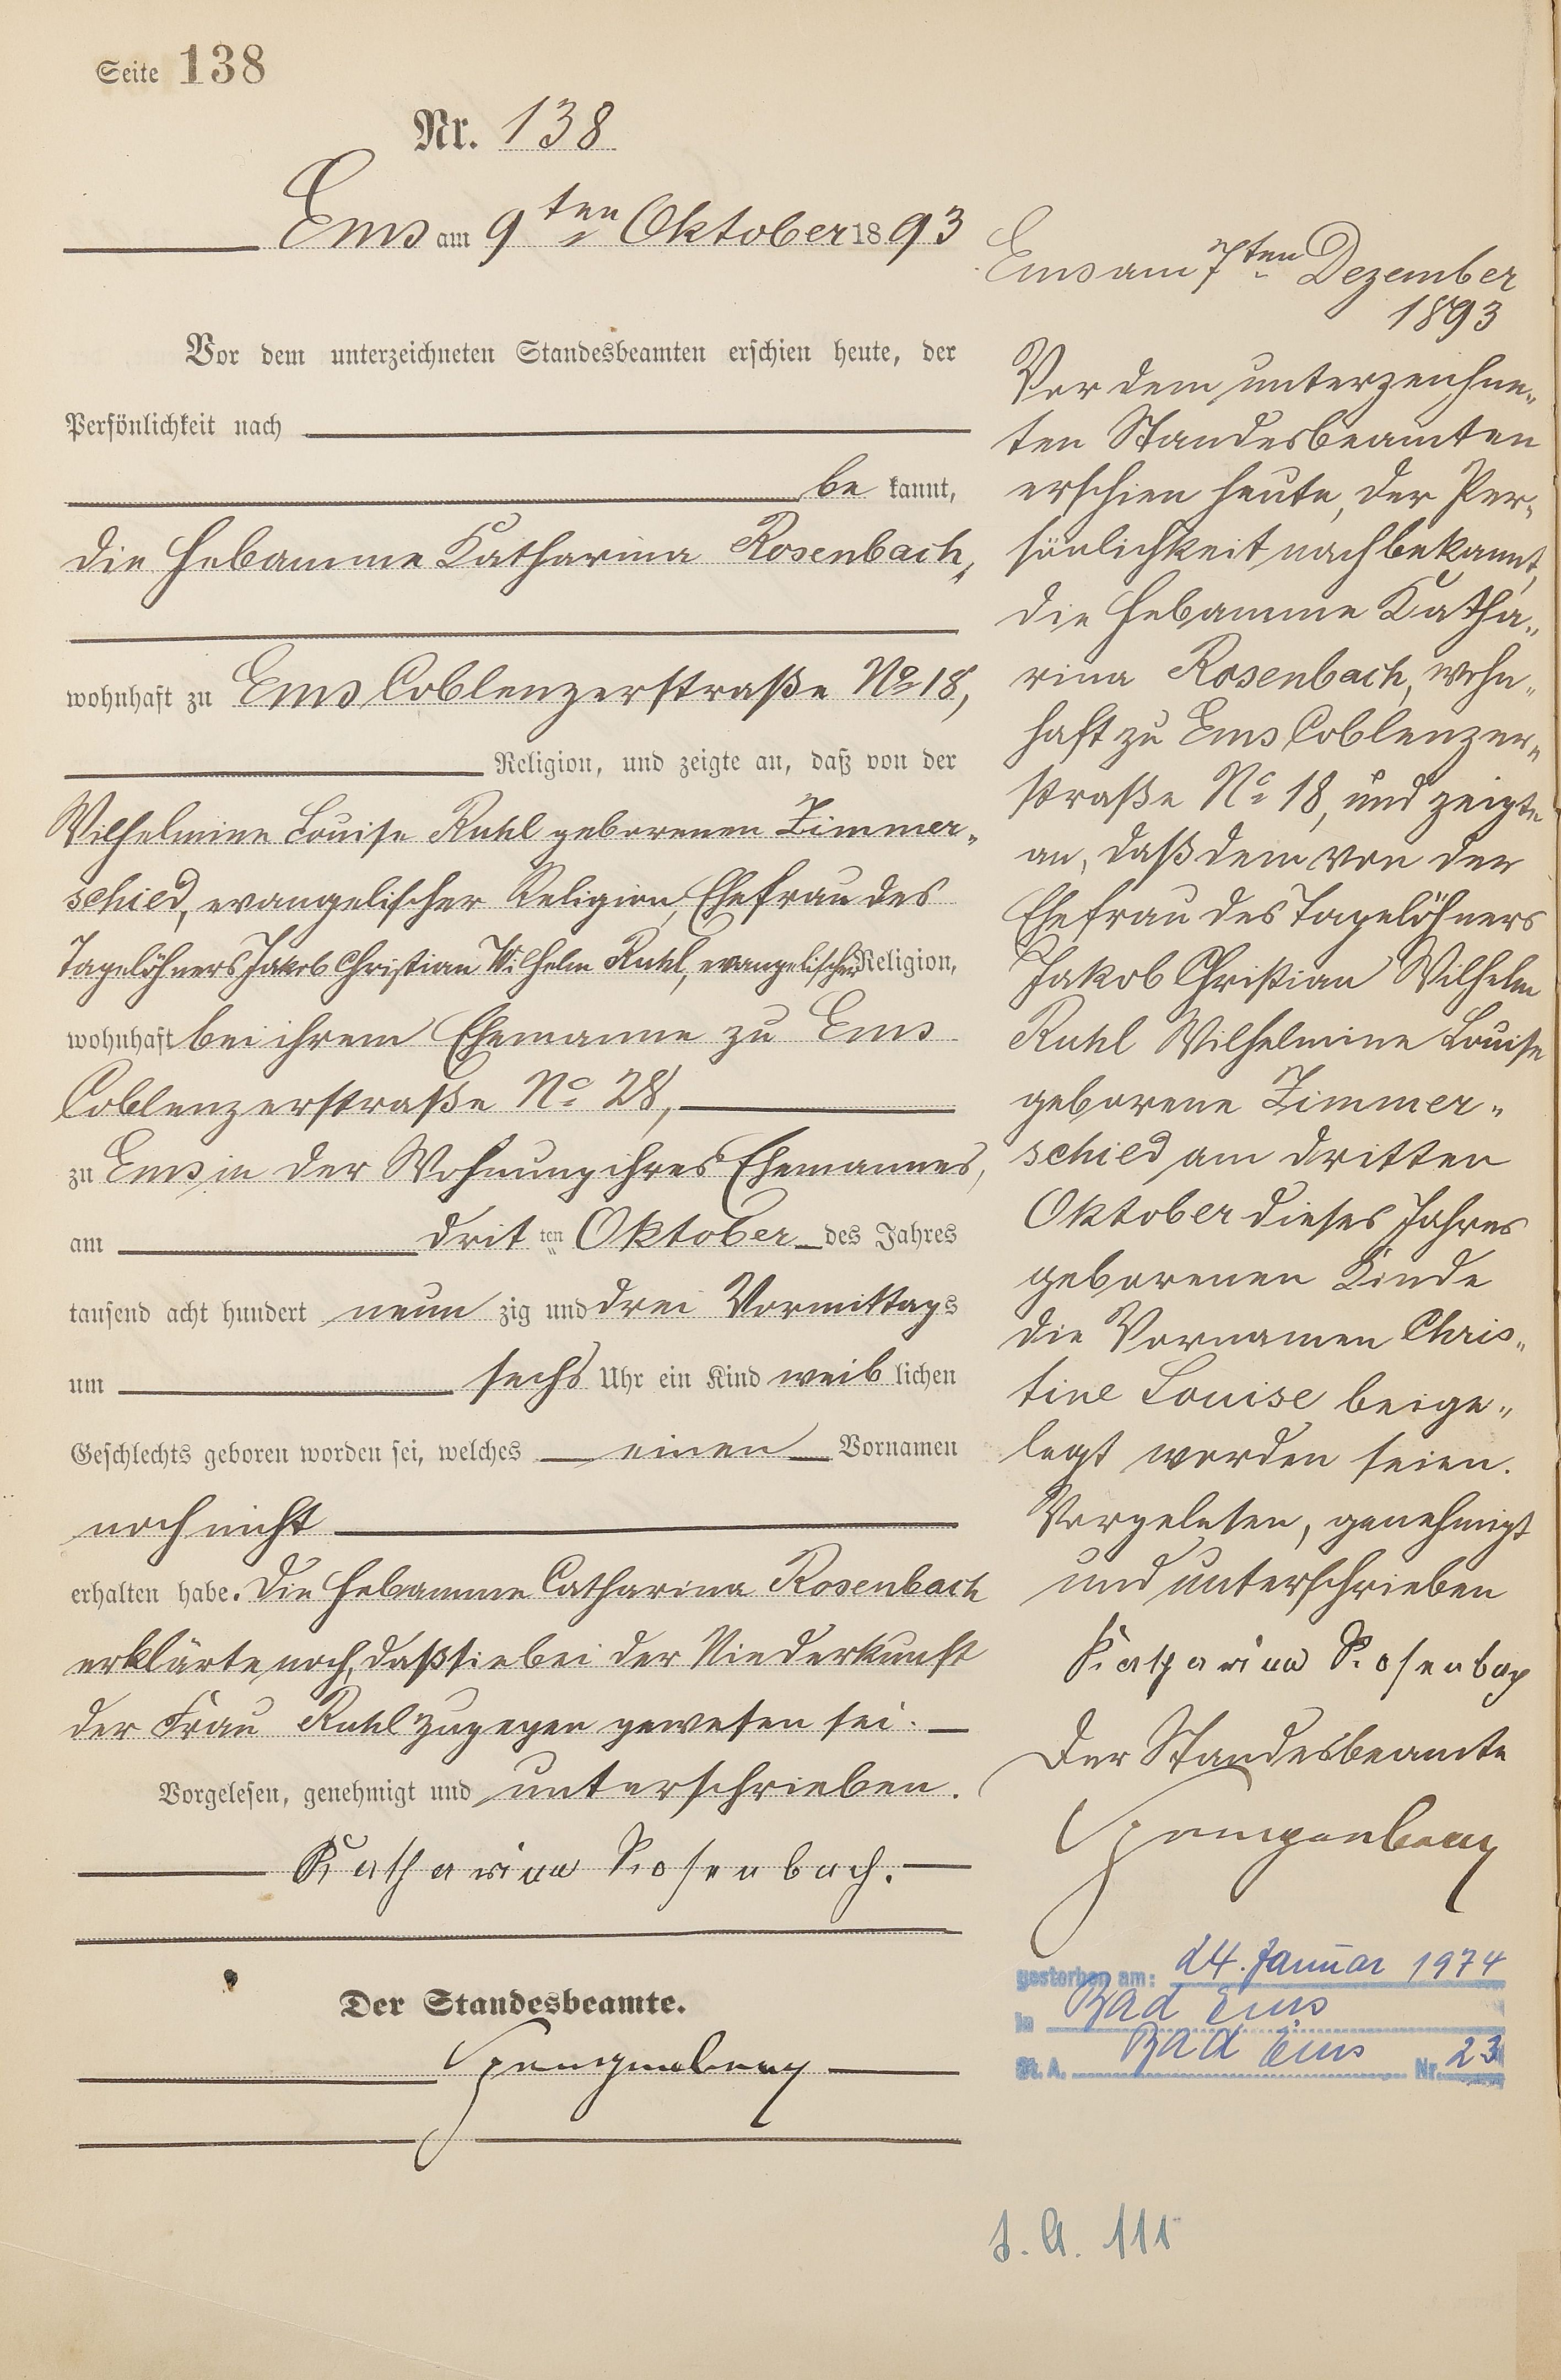 Seite 138
Nr. 138
Ems am 9ten Oktober 1893
Vor dem unterzeichneten Standesbeamten erschien heute, der
Persönlichkeit nach
be kannt,
die Hebamme Katharina Rosenbach,
wohnhaft zu Ems Coblenzerstraße No 18,
Religion, und zeigte an, daß von der
Wilhelmine Louise Ruhl geborenen Zimmer„
schied, evangelischer Religion, Ehefrau des
Tagelöhners Jakob Christian Wilhelm Ruhl, evangelischer Religion,
wohnhaft bei ihrem Ehemanne zu Ems
Coblenzerstraße No 28,
zu Ems in der Wohnung ihres Ehemannes,
am drit ten Oktober des Jahres
tausend acht hundert neun zig und drei Vormittags
um sechs Uhr ein Kind weib lichen
Geschlechts geboren worden sei, welches einen Vornamen
noch nicht
erhalten habe. Die Hebamme Catharina Rosenbach
erklärte noch, daß sie bei der Niederkunft
der Frau Ruhl zugegen gewesen sei.
Vorgelesen, genehmigt und unterschrieben.
Katharina Rosenbach.
Der Standesbeamte.
Spangenberg
Ems am 7ten Dezember
1893
Vor dem unterzeichne„
ten Standesbeamten
erschien heute, der Per„
sönlichkeit nach bekannt,
die Hebamme Katha„
rina Rosenbach, wohn„
haft zu Ems Coblenzer„
straße No 18, und zeigte
an, daß dem von der
Ehefrau des Tagelöhners
Jakob Christian Wilhelm
Ruhl Wilhelmine Louise
geborene Zimmer„
schied am dritten
Oktober dieses Jahres
geborenen Kinde
die Vornamen Chris„
tine Louise beige„
legt worden seien.
Vorgelesen, genehmigt
und unterschrieben
Katharina Rosenbach
Der Standesbeamte
Spangenberg
gestorben am: 24. Januar 1974
in Bad Ems
St. A. Bad Ems Nr. 23
S. A. 111